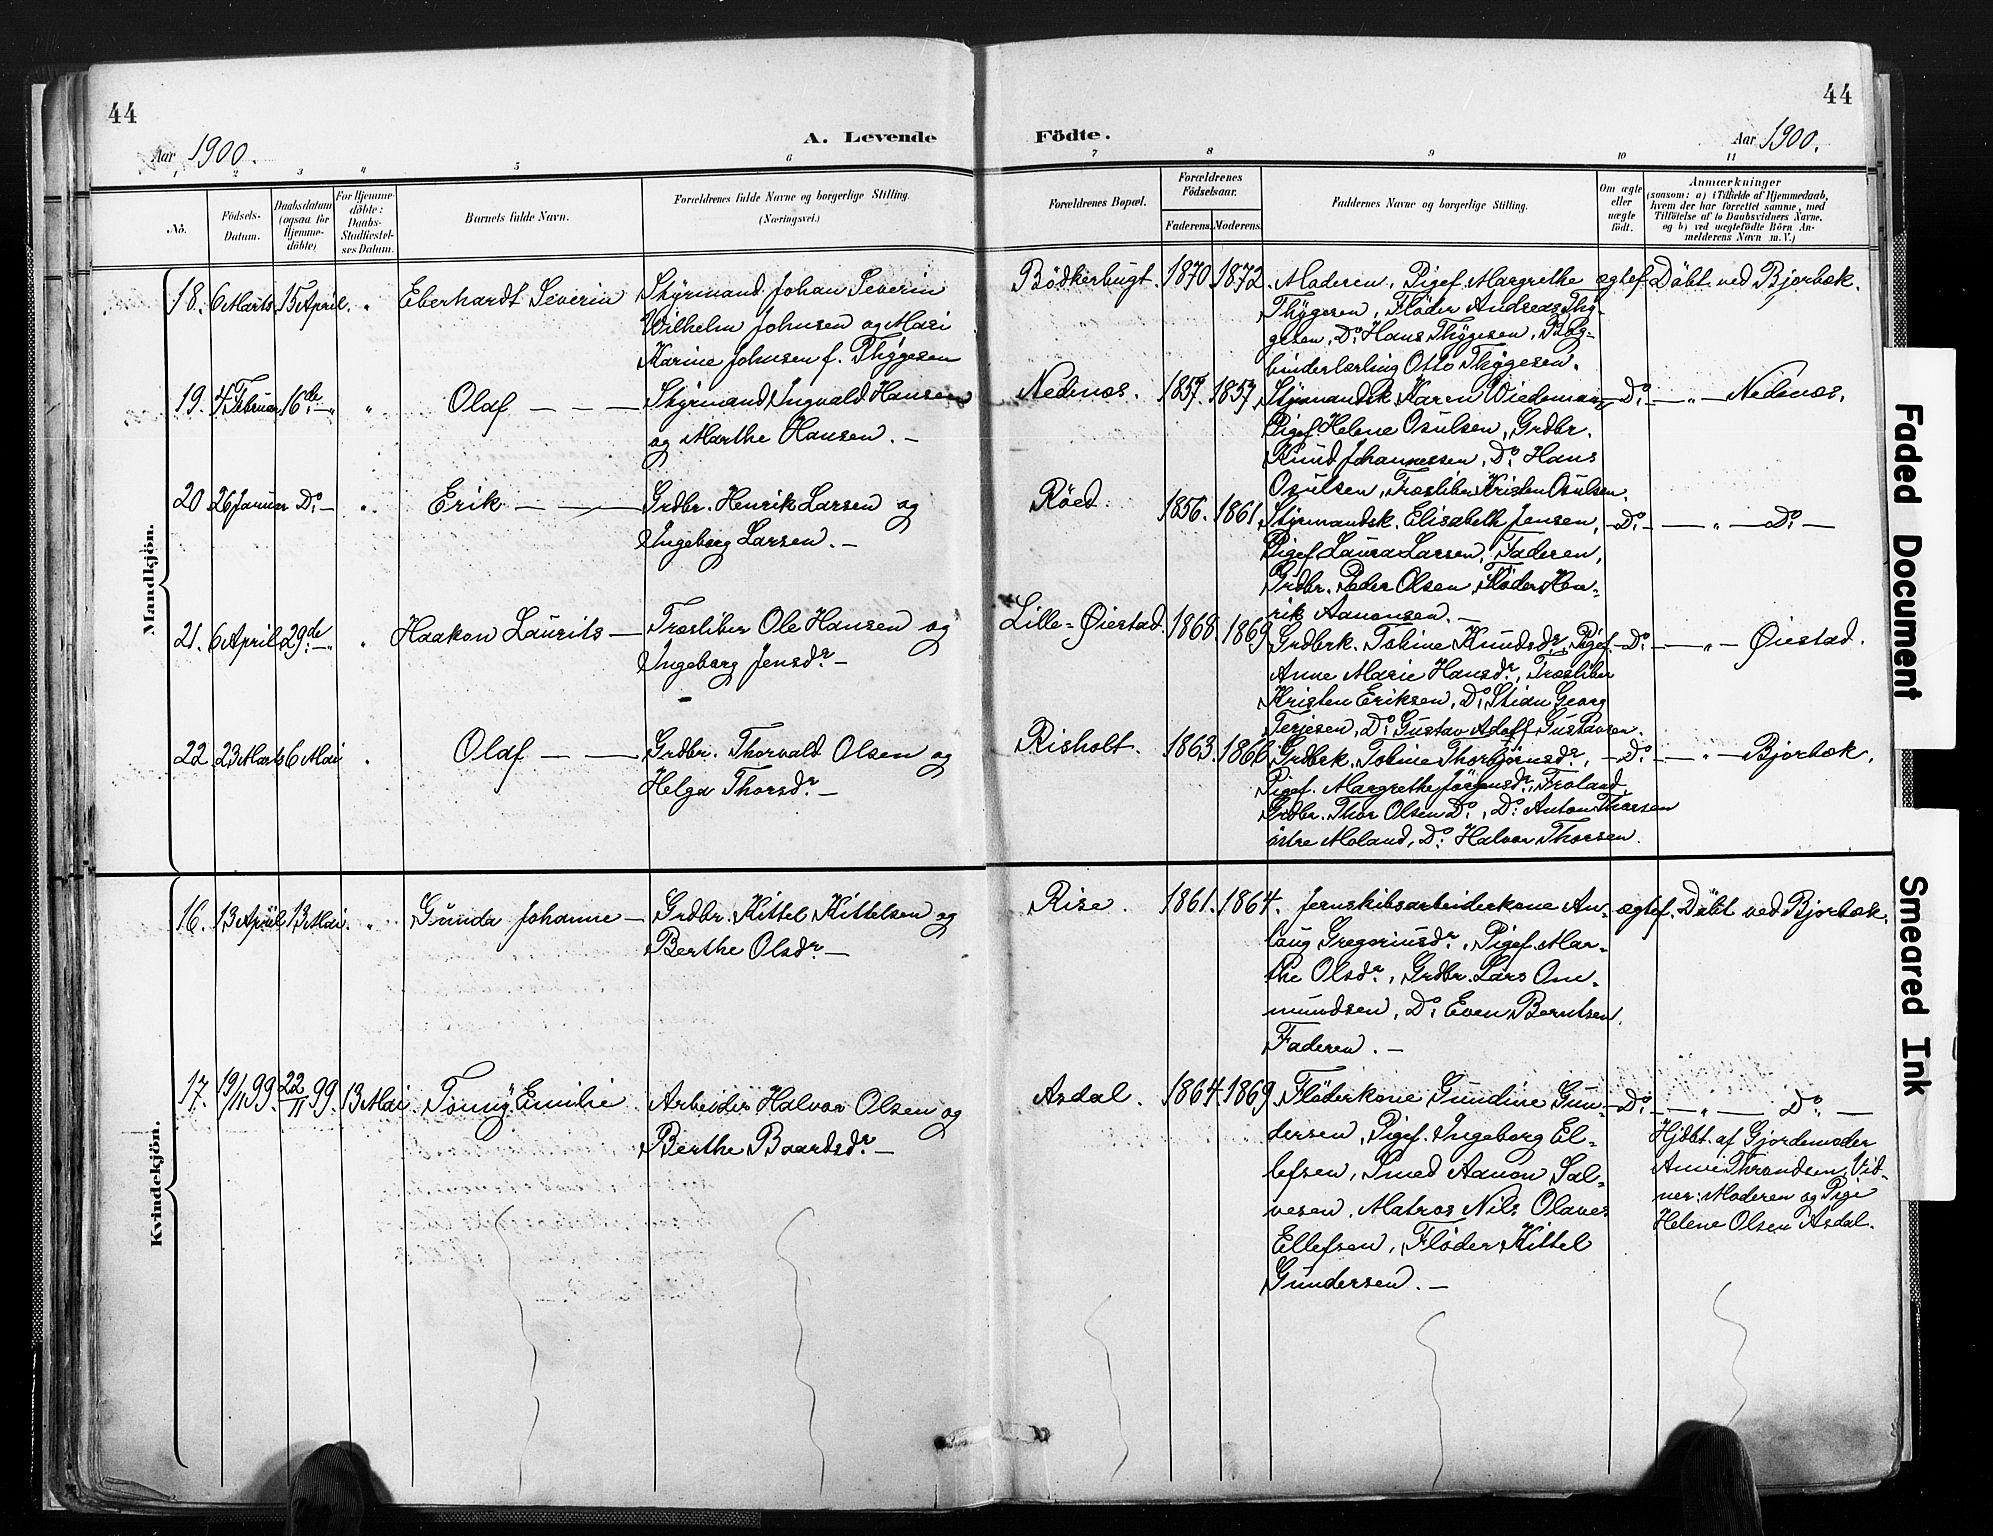 44
44
A. Levende Födte.
Aar 1900.
Aar 1900.
1 2 3 4 5 6 7 8 9 10 11
No.
Födsels-
Datum.
Daabsdatum
(ogsaa for
Hjemme-
döbte)
For Hjemme-
döbte:
Daabs-
Stadfæstel-
ses Datum.
Barnets fulde Navn.
Forældrenes fulde Navne og borgerlige Stilling.
(Næringsvei.)
Forældrenes Bopæl.
Forældrenes
Födselsaar.
Faderens. Moderens.
Faddernes Navne og borgerlige Stilling.
Om ægte
eller
uægte
født.
Anmærkninger
(saasom: a) i Tilfælde af Hjemmedaab,
hvem der har forrettet samme, med
Tilföielse af to Daabsvidners Navne.
og b) ved uægtefödte Börn An-
melderens Navn m. V.)
Mandkjön.
18. 6 Marts 15 April. " Eberhardt Severin
Styrmand Johan Severin
Wilhelm Johnsen og Mari
Karine Johnsen f. Thygesen
Bödkerbugt. 1870. 1872.
Moderen, Pigef. Margrethe
Thygesen, Fløder Andreas Thy-
gesen, Do Hans Thygesen, Bog-
binderlærling Otto Thygesen.
ægtef. Döbt ved Bjorbæk.
19. 4 Februar 16de — " " Olaf — — —
Styrmand Ingvald Hansen
og Marthe Hansen. —
Nedenæs. 1857. 1857.
Styrmandsk. Karen Wiedemann
Pigef. Helene Osulsen, Grdbr.
Knud Johannessen, Do Hans
Osulsen, Træsliber Kristen Osulsen.
— Do — — " — Nedenæs.
20 26 Januar Do — " Erik — — —
Grdbr. Henrik Larsen og
Ingeborg Larsen. —
Røed. 1856. 1861.
Styrmandsk. Elisabeth Jensen,
Pigef. Laura Larsen, Faderen,
Grdbr. Peder Olsen, Fløder Hen-
rik Aanonsen. —
— Do — — " — Do —
21. 6 April 29de — " " Haakon Laurits —
Træsliber Ole Hansen og
Ingeborg Jensdr —
Lille-Øiestad. 1868. 1869
Grdbrk. Tobine Knudsdr, Pigef.
Anne Marie Hansdr, Træsliber
Kristen Eriksen, Do Stian Georg
Terjesen, Do Gustav Adolf Gustavsen.
— Do — — " — Øiestad.
22 23 Marts 6 Mai " Olaf — — —
Grdbr. Thorvald Olsen og
Helga Thorsdr —
Risholt. 1863. 1866
Grdbrk. Tobine Thorbjørnsdr,
Pigef. Margrethe Jörgensdr, Froland,
Grdbr. Thor Olsen Do, Do Anton Thorsen
østre Moland, Do Halvor Thorsen.
— Do — — " — Bjorbæk.
Kvindekjön.
16. 13 April 13 Mai. " Gunda Johanne —
Grdbr. Kittel Kittelsen og
Berthe Olsdr —
Rise. 1861. 1864.
Jernskibsarbeiderkone An-
laug Gregoriusdr, Pigef. Mar-
the Olsdr, Grdbr. Lars Om-
mundsen, Do Even Berntsen,
Faderen. —
ægtef. Döbt ved Bjorbæk.
17. 19/11 99. 22/11 99. 13 Mai Tonny Emilie
Arbeider Halvor Olsen og
Berthe Baardsdr —
Asdal. 1864 1869
Fløderkone Gundine Gun-
dersen, Pigef. Ingeborg El-
lefsen, Smed Aanon Sal-
vesen, Matros Nils Olaves
Ellefsen, Fløder Kittel
Gundersen. —
— Do — — " — Do —
Hjdbt. af Gjordemoder
Anne Throndsen, Vid-
ner: Moderen og Pige
Helene Olsen Asdal.
Faded Document
Smeared Ink